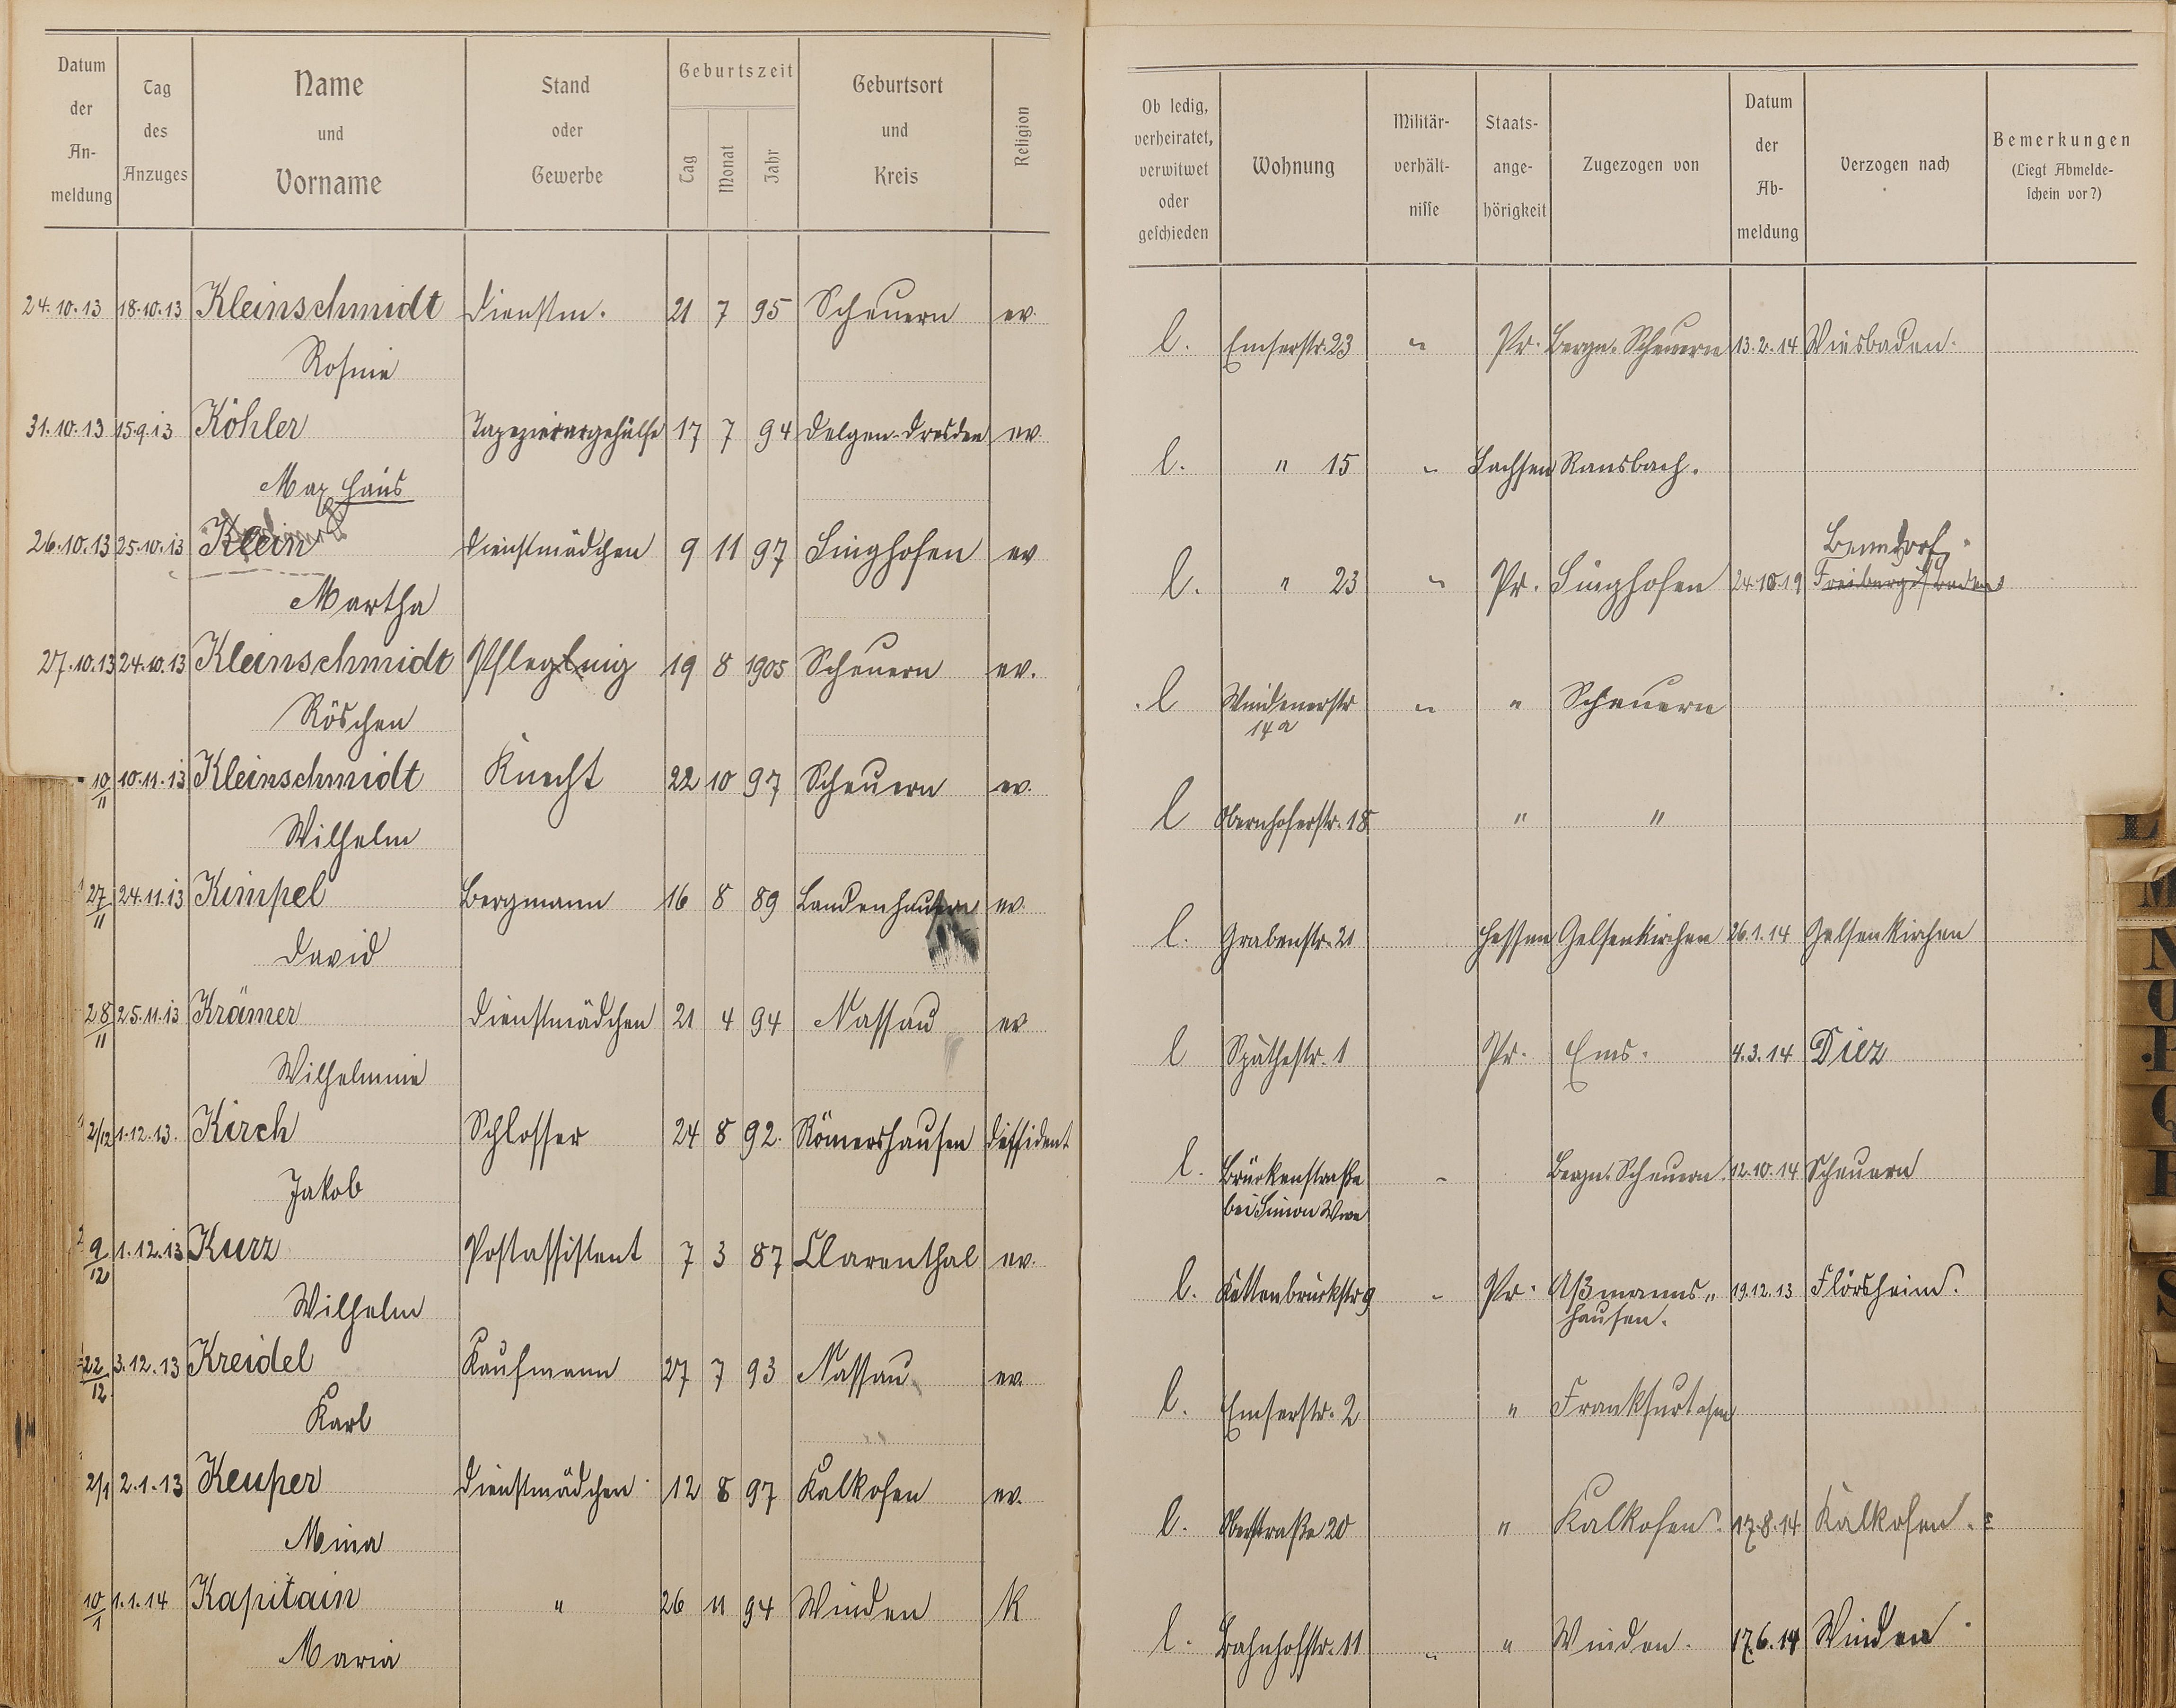 Datum der Anmeldung
Tag des Anzuges
Name und Vorname
Stand oder Gewerbe
Geburtszeit
Tag Monat Jahr
Geburtsort und Kreis
Religion
Ob ledig, verheiratet, verwitwet oder geschieden
Wohnung
Militärverhältnisse
Staatsangehörigkeit
Zugezogen von
Datum der Abmeldung
Verzogen nach
Bemerkungen
(Liegt Abmeldeschein vor?)
24.10.13 18.10.13 Kleinschmidt Dienstm. 21 7 95 Scheuern ev. l. Emserstr. 23 " Pr. Bergn. Scheuern 13.2.14 Wiesbaden.
Rosine
31.10.13 15.9.13 Köhler Tapezierergehülfe 17 7 94 Dresden ev. l. " 15 " Sachsen Ransbach.
Max Hans
26.10.13 25.10.13 Klein Dienstmädchen 9 11 97 Singhofen ev l. " 23 " Pr. Singhofen 24.10.19 Freiburg i/Baden
Benndorf
Martha
27.10.13 24.10.13 Kleinschmidt 19 8 1905 Scheuern ev. l Windenerstr 14a " " Scheuern
Röschen
10/11 10.11.13 Kleinschmidt Knecht 22 10 97 Scheuern ev. l Obernhoferstr. 18 " "
Wilhelm
27/11 24.11.13 Kimpel Bergmann 16 8 89 Landenhausen ev. l. Grabenstr. 21 Hessen Gelsenkirchen 26.1.14 Gelsenkirchen
David
28/11 25.11.13 Krämer Dienstmädchen 21 4 94 Nassau ev l Späthestr. 1 Pr. Ems. 4.3.14 Diez
Wilhelmine
2/12 1.12.13. Kirch Schlosser 24 8 92. Römershausen Dissident l. Brückenstraße bei Simon Wwe " Bergn. Scheuern 12.10.14 Scheuern
Jakob
9/12 1.12.13 Kurz Postassistent 7 3 87 Clarenthal ev. l. Kettenbrückstr 9 " Pr. Aßmannshausen. 19.12.13 Flörsheim.
Wilhelm
22/12 3.12.13 Kreidel Kaufmann 27 7 93 Nassau ev. l. Emserstr. 2 " Frankfurt a/m
Karl
2/1 2.1.13 Keuper Dienstmädchen 12 8 97 Kalkofen ev. l. Oberstraße 20 " Kalkofen. 17.8.14 Kalkofen.
Mina
10/1 1.1.14 Kapitain " 26 11 94 Winden K l. Bahnhofstr. 11 " " Winden. 17.6.14 Winden
Maria